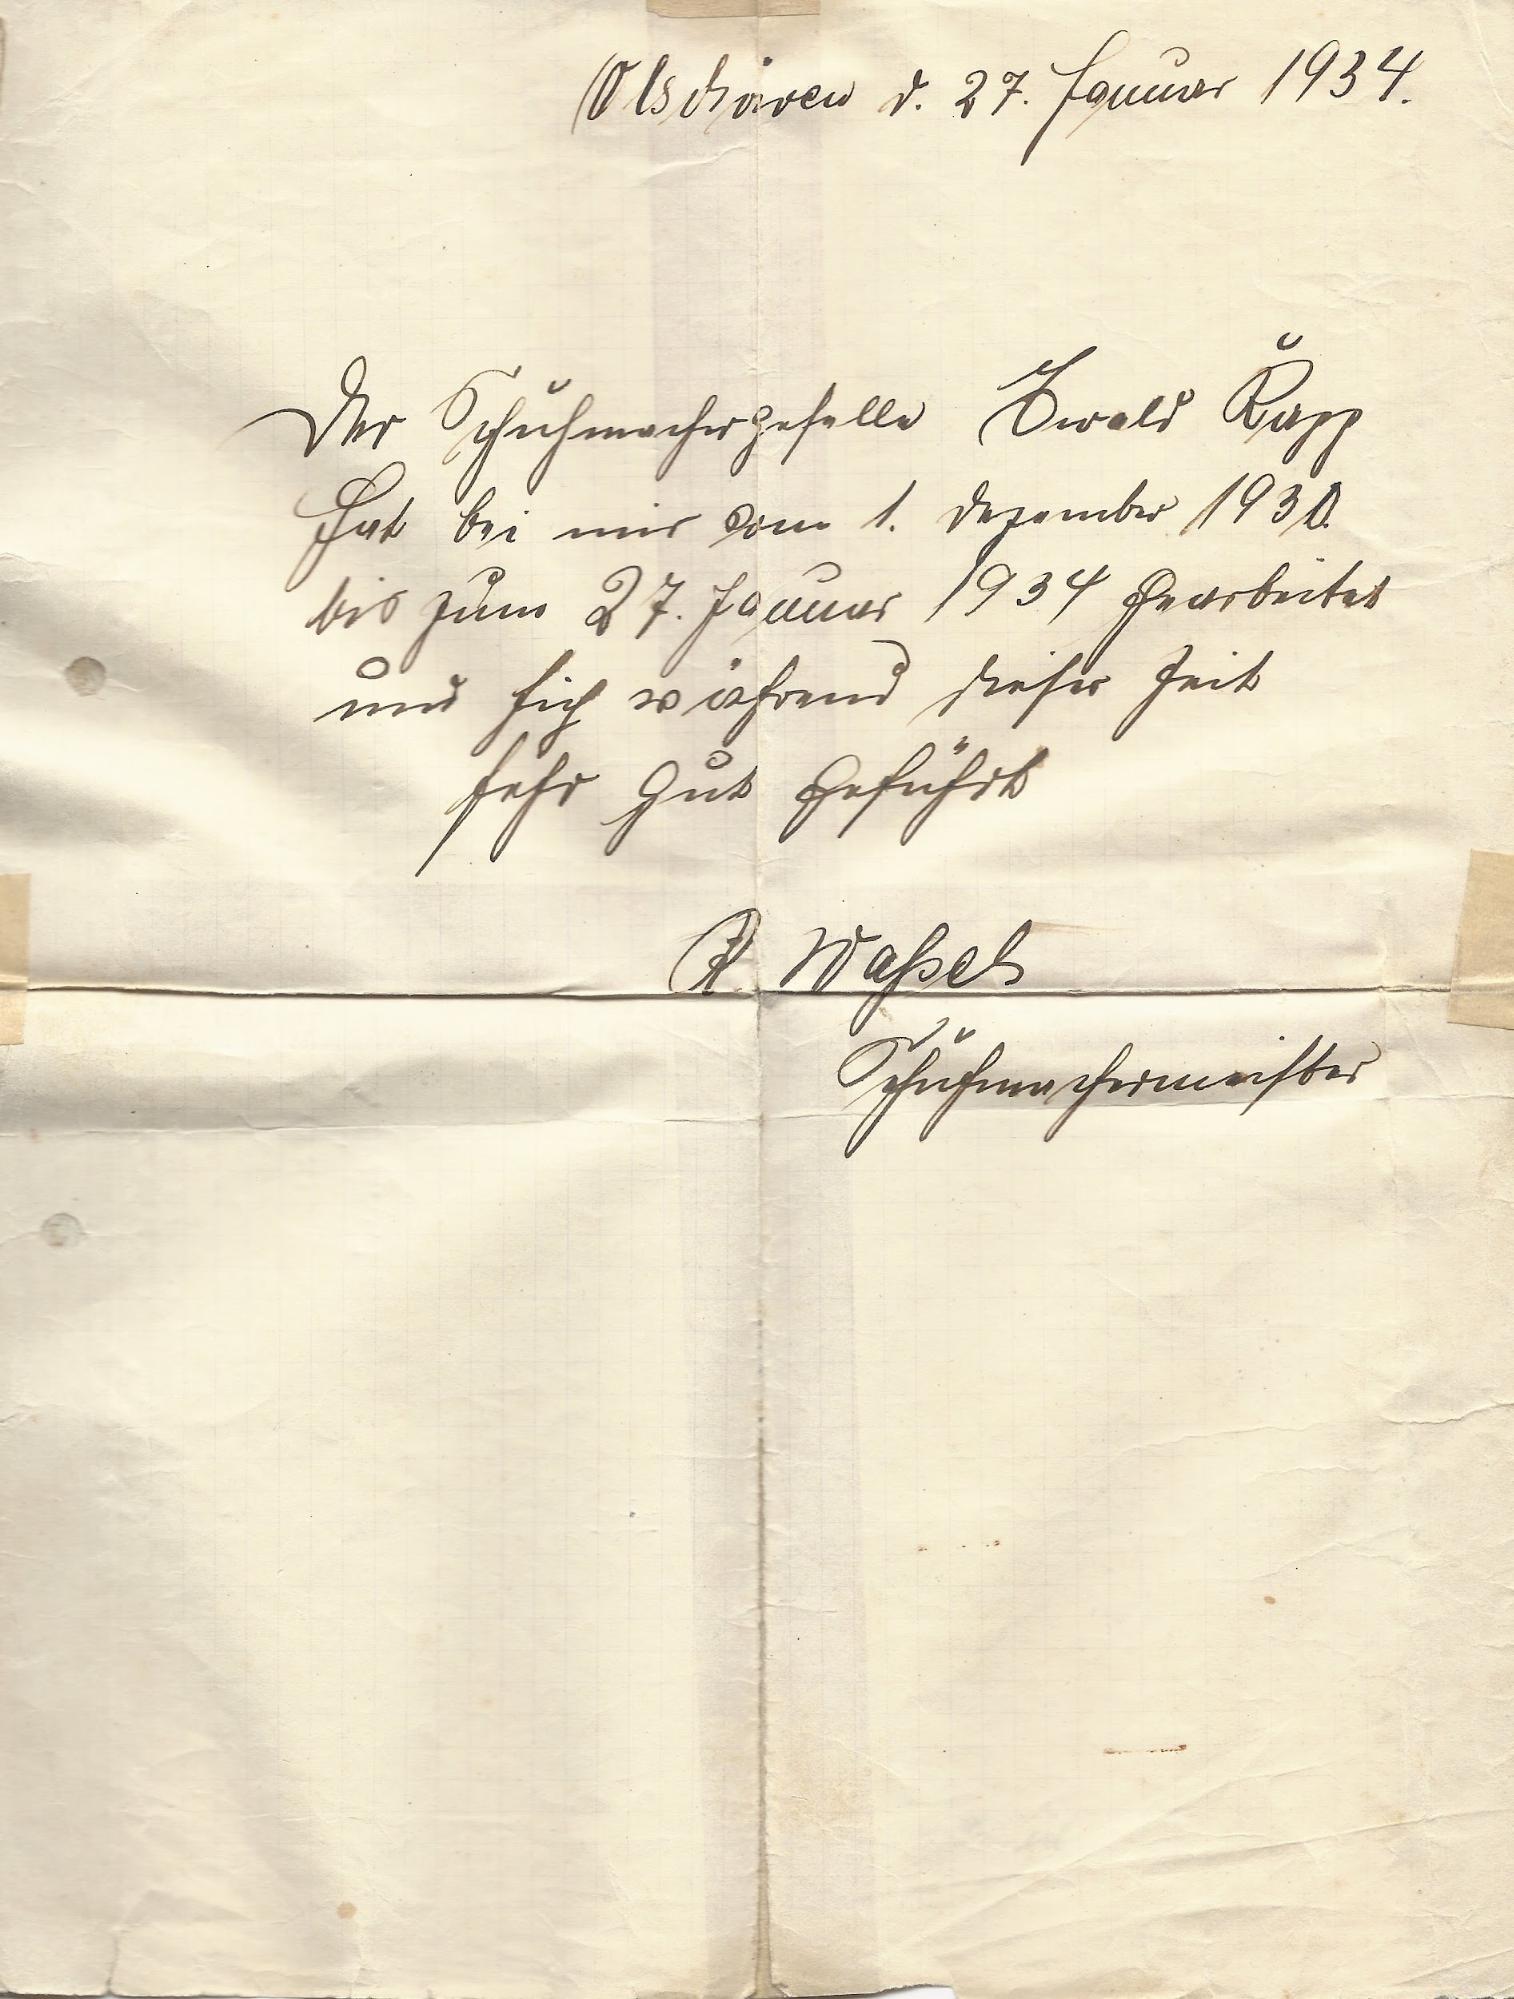 Olschöwen d. 27. Januar 1934.
Der Schuhmachergeselle Ewald Rupp
hat bei mir vom 1. Dezember
bis zum 27. Januar 1934 gearbeitet
und sich während dieser Zeit
sehr gut geführt
Waßel
Schuhmachermeister